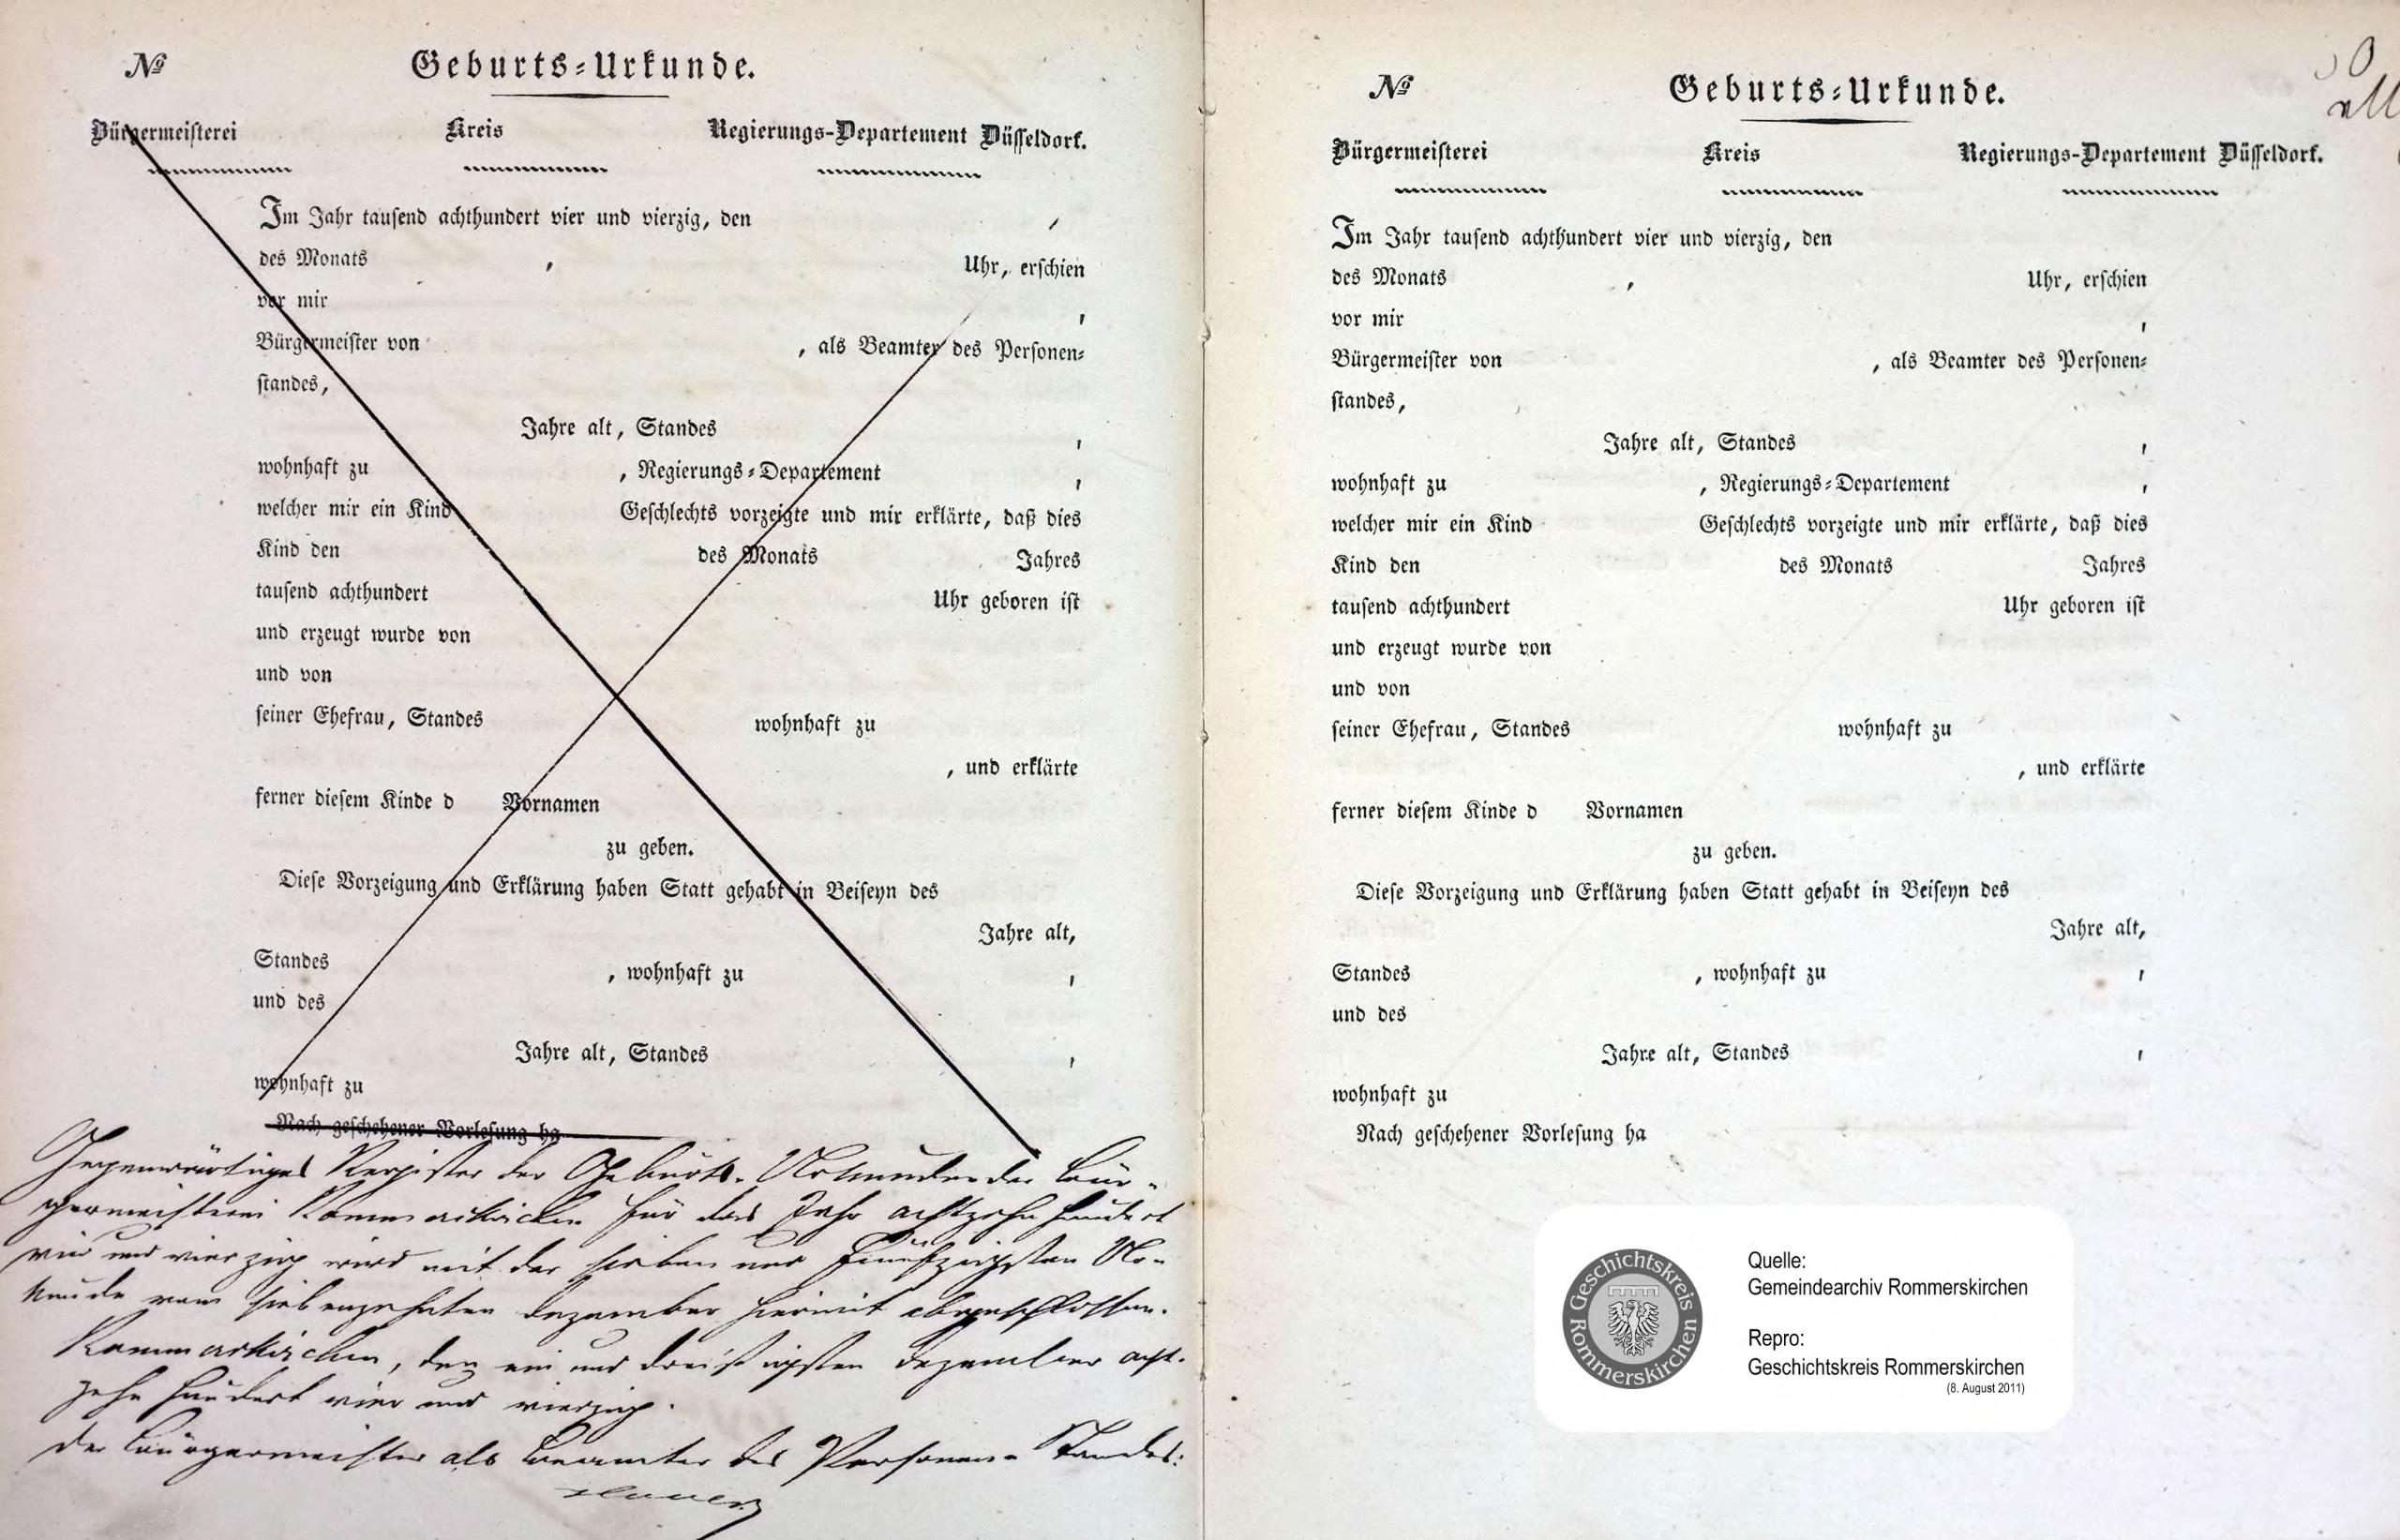 №
Geburts-Urkunde.
Bürgermeisterei Kreis Regierungs-Departement Düsseldorf.
Im Jahr tausend achthundert vier und vierzig, den ,
des Monats , Uhr, erschien
vor mir ,
Bürgermeister von , als Beamter des Personen-
standes,
Jahre alt, Standes ,
wohnhaft zu , Regierungs-Departement ,
welcher mir ein Kind Geschlechts vorzeigte und mir erklärte, daß dies
Kind den des Monats Jahres
tausend achthundert Uhr geboren ist
und erzeugt wurde von
und von
seiner Ehefrau, Standes wohnhaft zu
, und erklärte
ferner diesem Kinde d Vornamen
zu geben.
Diese Vorzeigung und Erklärung haben Statt gehabt in Beiseyn des
Jahre alt,
Standes , wohnhaft zu ,
und des
Jahre alt, Standes ,
wohnhaft zu
Nach geschehener Vorlesung ha
Gegenwärtiges Register der Geburts-Urkunden der Bür-
germeisterei Rommerskirchen für das Jahr achtzehn hundert
vier und vierzig wird mit der sieben und fünfzigsten Ur-
kunde vom siebenzehnten Dezember hiermit abgeschlossen.
Rommerskirchen, den ein und dreißigsten Dezember acht-
zehn hundert vier und vierzig.
Der Bürgermeister als Beamter des Personen-Standes:
№
Geburts-Urkunde.
Bürgermeisterei Kreis Regierungs-Departement Düsseldorf.
Im Jahr tausend achthundert vier und vierzig, den
des Monats , Uhr, erschien
vor mir ,
Bürgermeister von , als Beamter des Personen-
standes,
Jahre alt, Standes ,
wohnhaft zu , Regierungs-Departement ,
welcher mir ein Kind Geschlechts vorzeigte und mir erklärte, daß dies
Kind den des Monats Jahres
tausend achthundert Uhr geboren ist
und erzeugt wurde von
und von
seiner Ehefrau, Standes wohnhaft zu
, und erklärte
ferner diesem Kinde d Vornamen
zu geben.
Diese Vorzeigung und Erklärung haben Statt gehabt in Beiseyn des
Jahre alt,
Standes , wohnhaft zu ,
und des
Jahre alt, Standes ,
wohnhaft zu
Nach geschehener Vorlesung ha
Geschichtskreis Rommerskirchen
Quelle:
Gemeindearchiv Rommerskirchen
Repro:
Geschichtskreis Rommerskirchen
(8. August 2011)